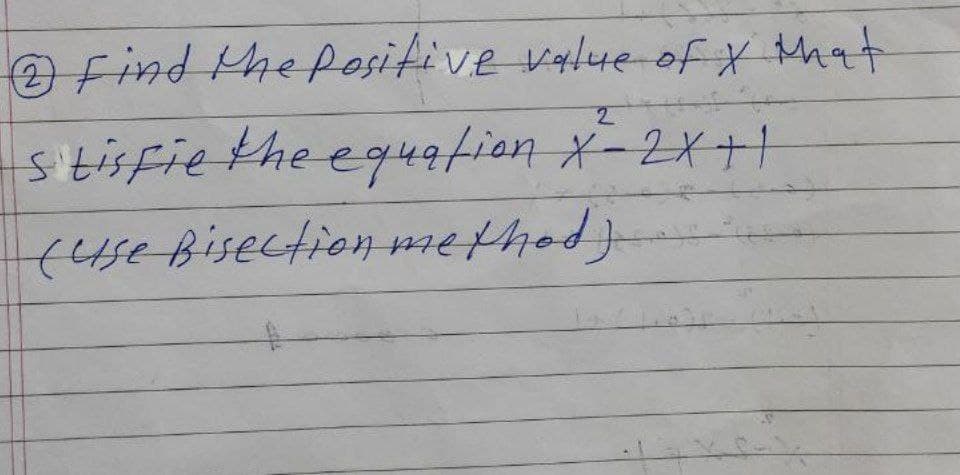 ② Find the Positive value of x that
stisfie the equation x²-2x+1
(Use Bisection method)